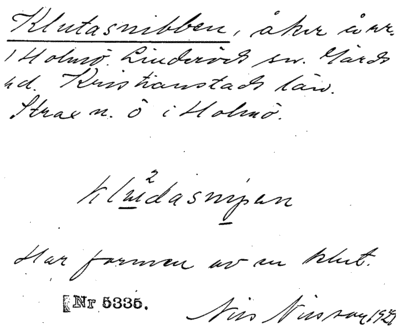 Klutasnibben, åker å nr.
1 Holmö. Linderöds sn. Gärds
hd. Kristianstads län.
Strax n. ö i Holmö.
2
kludasnipan
Har formen av en klut.
Nr 5335.
Nils Nilsson